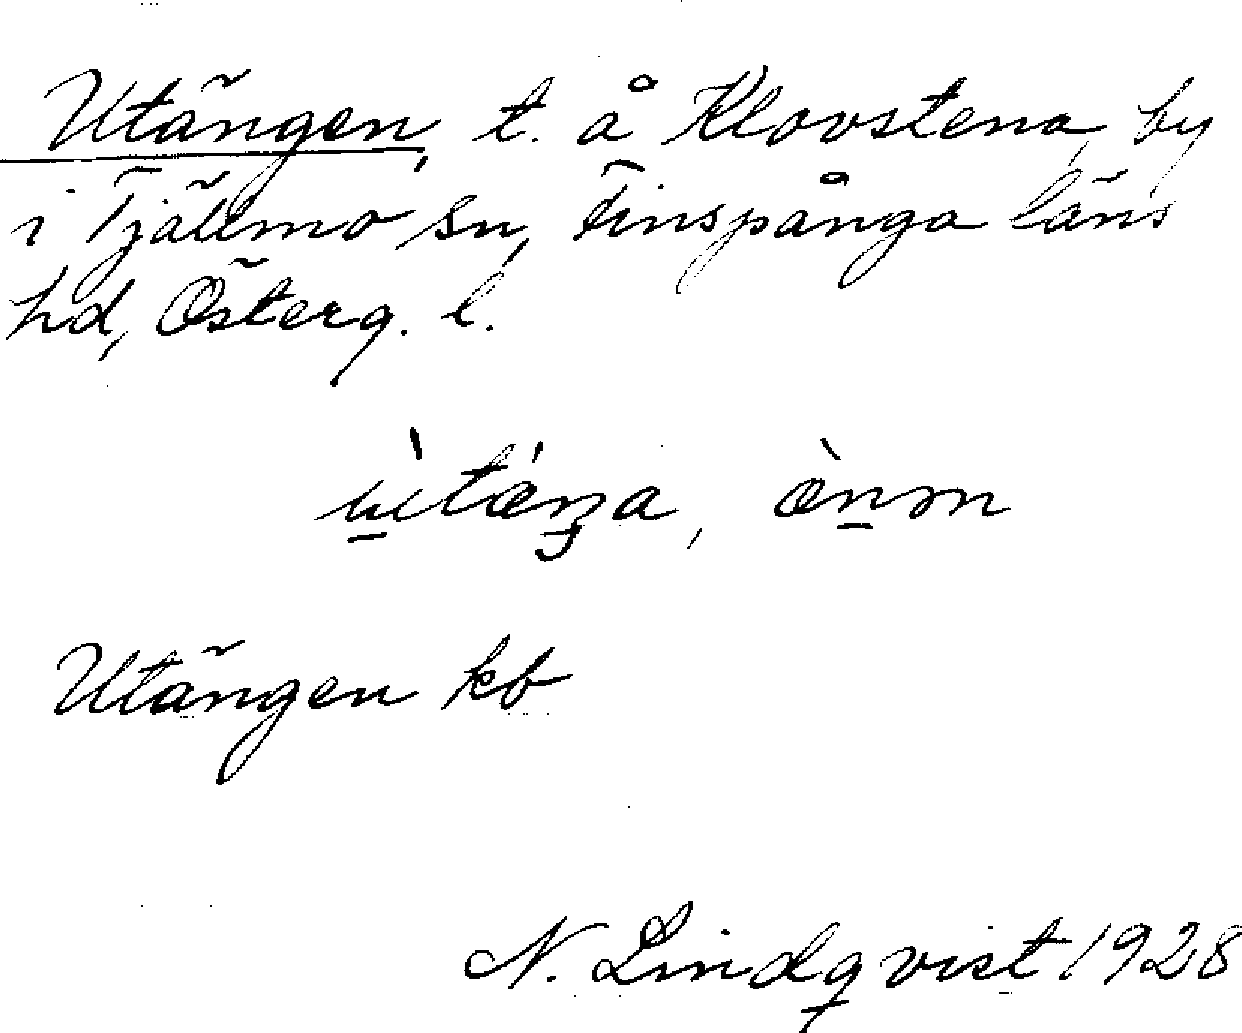 Utängen, t. å Klovstena, by
i Tjällmo sn, Finspånga läns
hd, Österg. l.
Utängen kb
N. Lindqvist 1928